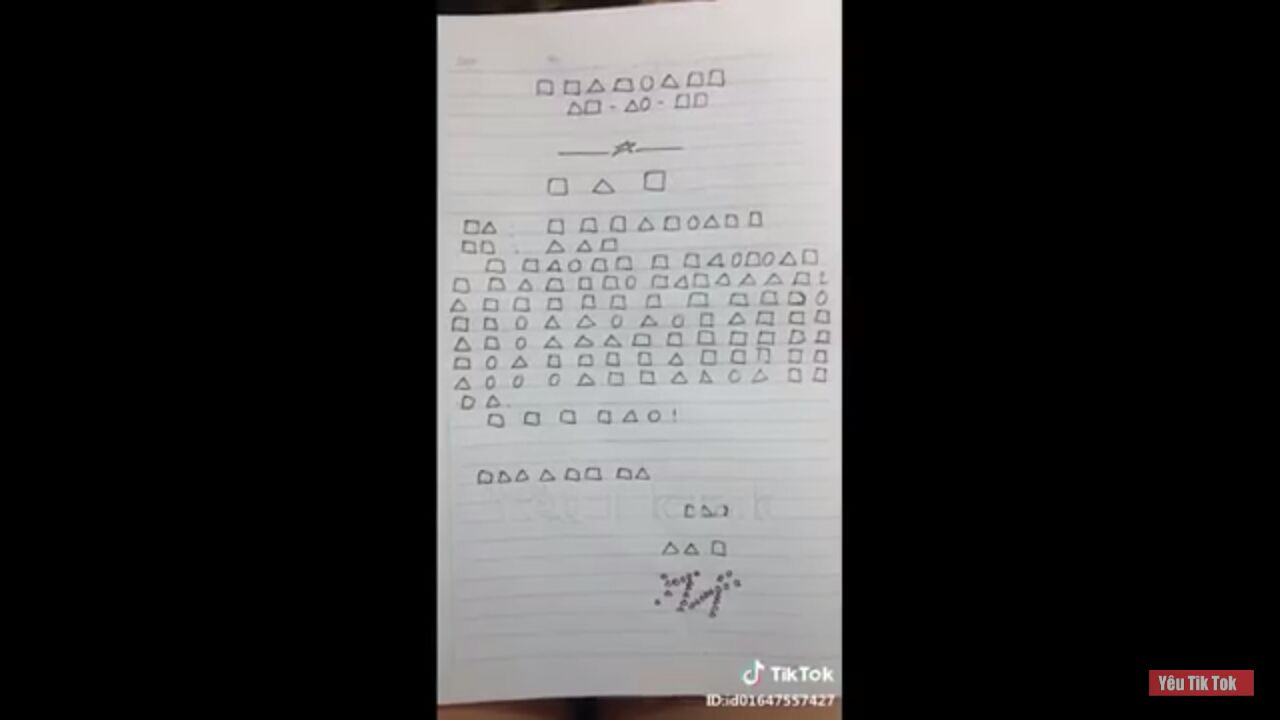 TikTok
ID:id01647557427
Yêu Tik Tok